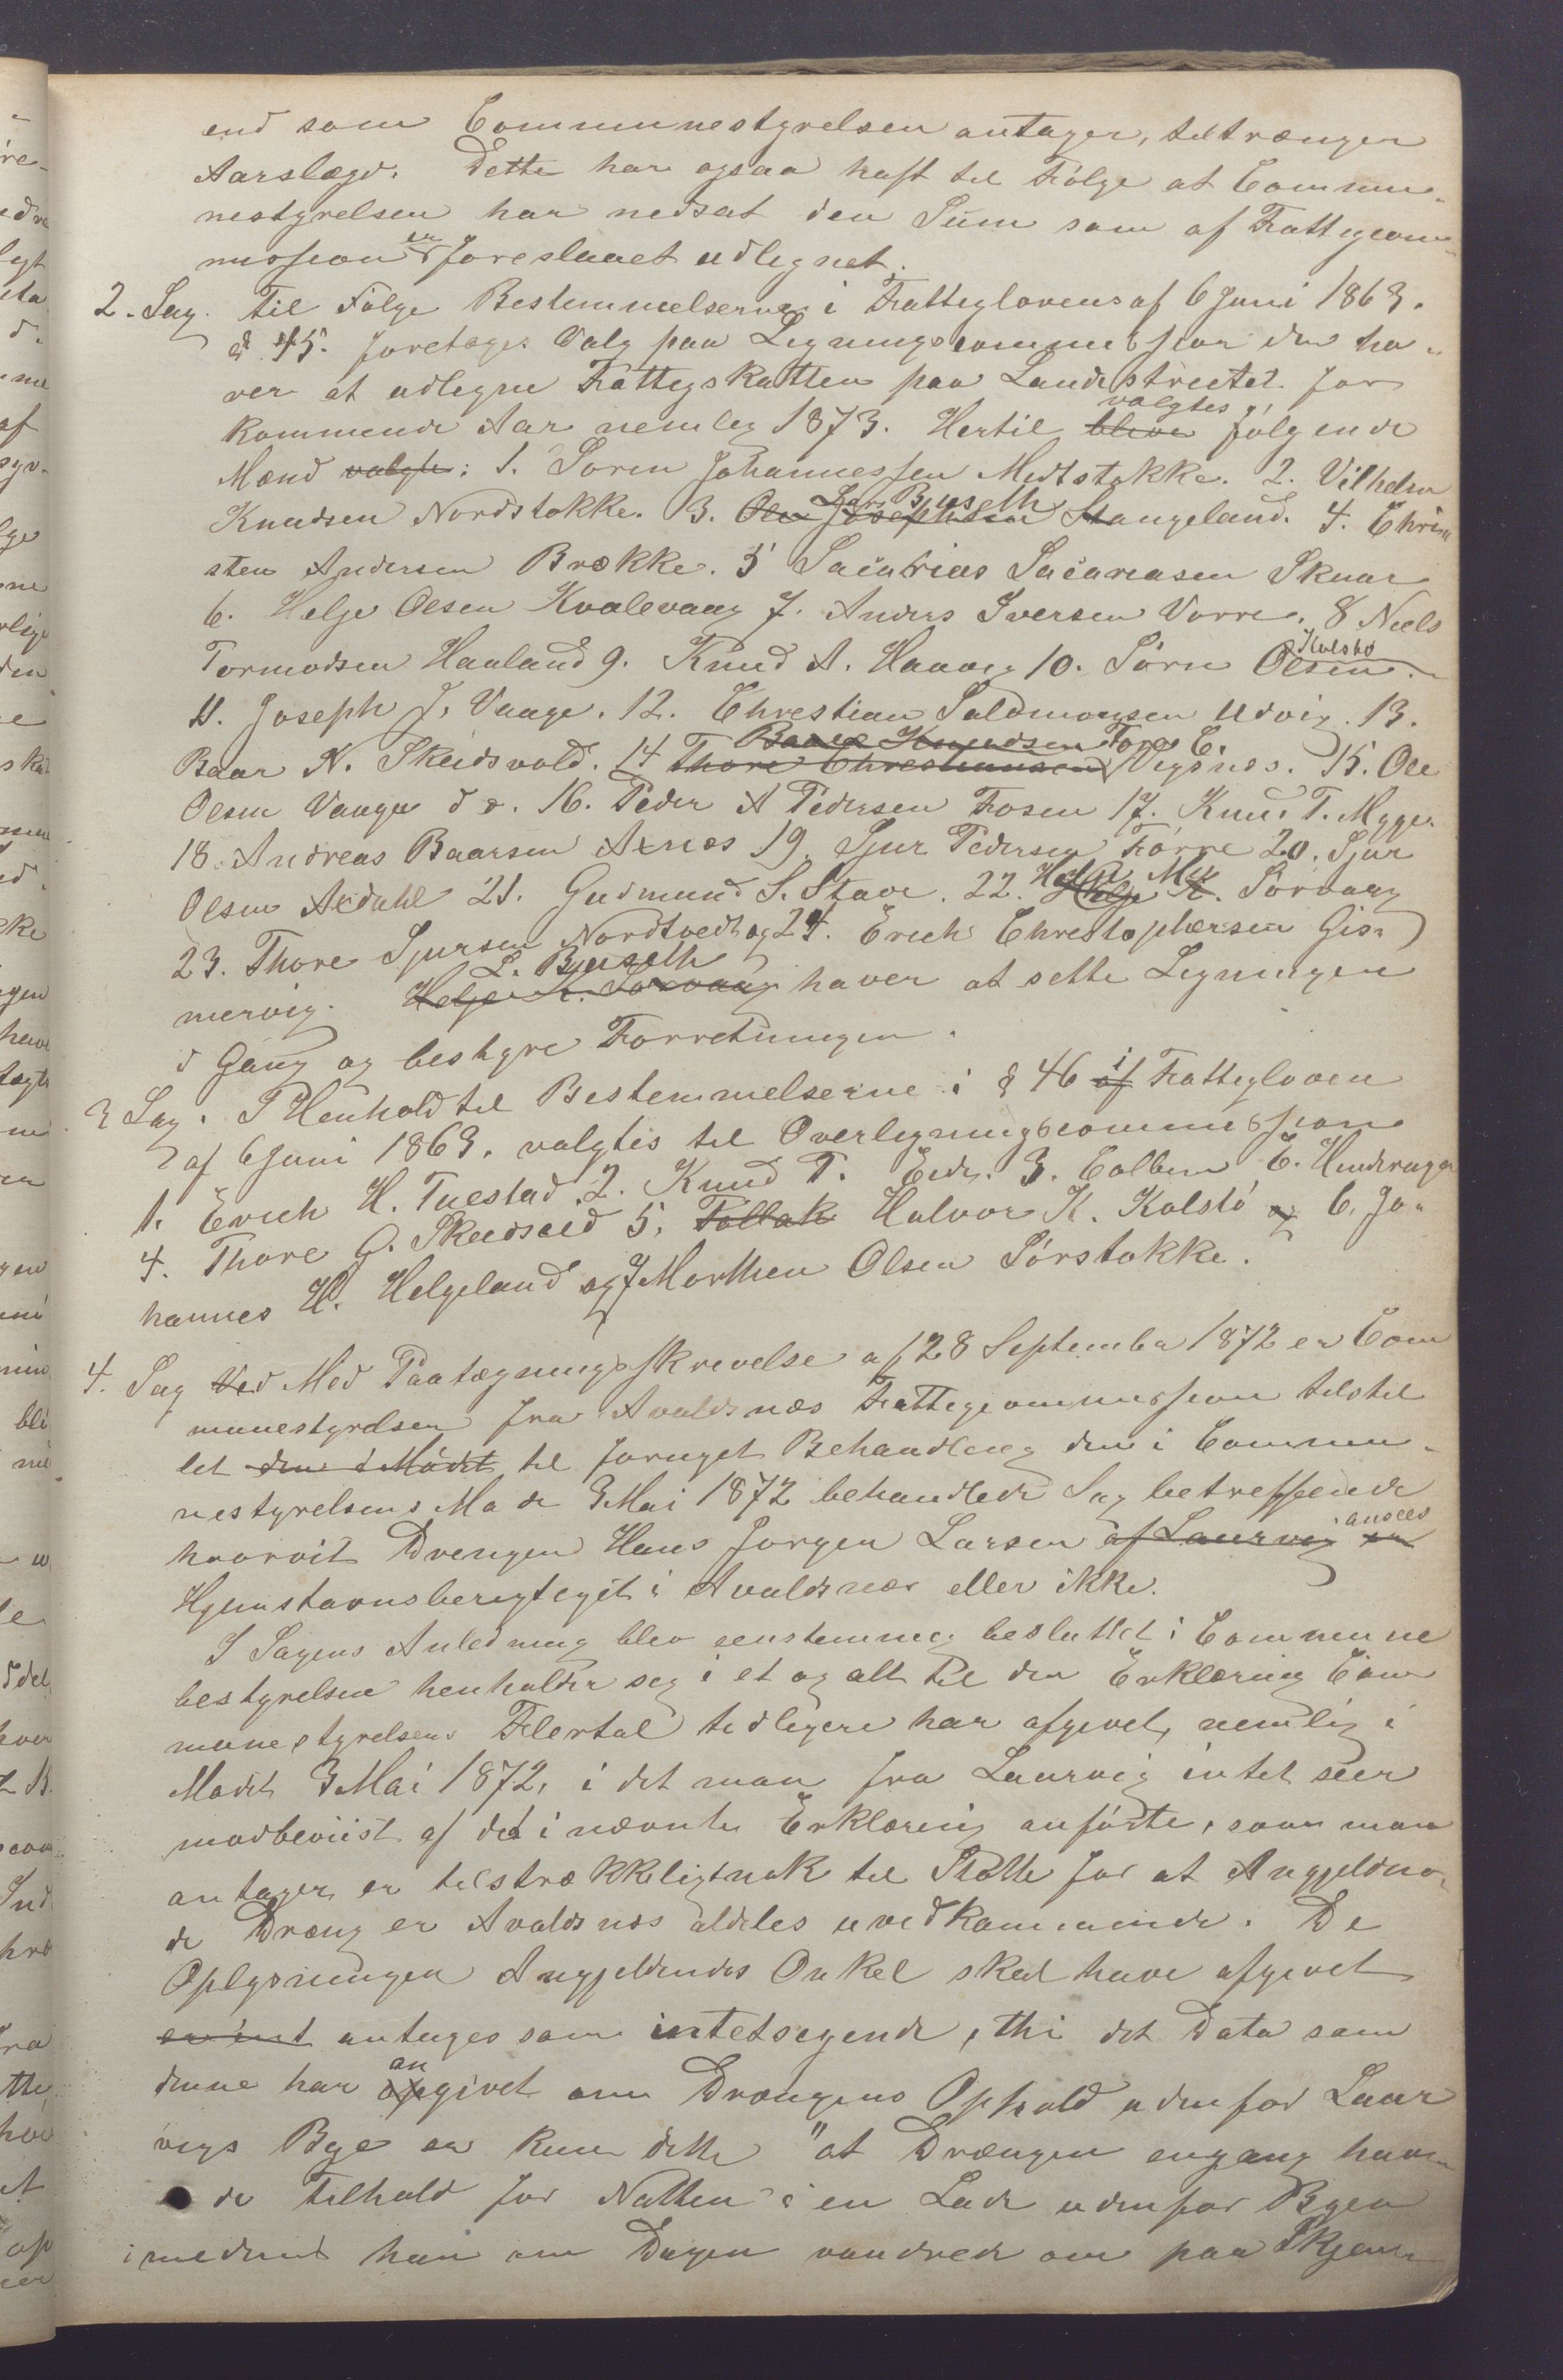 end som Communestyrelsen antager, tiltrænger
Aarslægd. Dette har ogsaa haft til Følge at Commu-
nestyrelsen har nedsat den Sum som af Fattigcom-
mission er foreslaaet udlignet.
2. Sag. Til Følge Bestemmelserne i Fattiglovens af 6 Juni 1863.
§ 45. foretoges Valg paa Ligningscommission der ha-
ver at udligne Fattigskatten paa Landdistrictet for
kommende Aar nemlig 1873. Hertil bleve valgtes følgende
Mænd valgte: 1. Søren Johannessen Midtstokke. 2. Vilhelm
Knudsen Nordstokke. 3. Ole Josephsen Lars Bjuseth Stangeland. 4. Chrin
sten Andersen Brække. 5 Sacarias Sacariasen Skaar
6. Helge Olsen Kvalevaag 7. Anders Iversen Vorre. 8 Niels
Tormodsen Haaland 9. Knud A. Haavig 10. Sørn Olsen Kolstø
11. Joseph J. Vaage. 12. Christian Saldmonsen Udvig. 13.
Baar N. Skeidsvold. 14 Thore Christiansen Baar Knudsen Tore C. Vigsnæs. 15. Ole
Olsen Vaage d æ. 16. Peder A Pedersen Fosen 17. Knud T. Mygge
18. Andreas Baarsen Axnæs 19. Sjur Pedersen Førre 20. Sjur
Olsen Aidahl 21. Gudmund S. Stave. 22. Helge K. Helge My Sørvaag
23. Thore Sjursen Nordtvedt og 24. Erich Christophersen Gis-
mervig. Helge K. Sørvaag L. Bjuseth haver at sette Ligningen
i Gang og bestyre Forretningen.
3 Sag. I Henhold til Bestemmelserne i § 46 af i Fattigloven
af 6 Juni 1863. valgtes til Overligningscommission
1. Erich H. Tuestad 2. Knud T. Eide. 3. Colben E. Hinderager
4. Thore G. Skeidseid 5. Tollak Halvor K. Kolstø og 6. Jo-
hannes H. Helgeland og 7 Morthen Olsen Sørstokke.
4. Sag Ved Med Paategningsskrivelse af 28 September 1872 er Com
munestyrelsen fra Avaldsnæs Fattigcommission tilstil
let den i Mødet til fornyet Behandling den i Commu-
nestyrelsens Møde 3 Mai 1872 behandlede Sag betreffende
hvorvit Drengen Hans Jorgen Larsen af Laurvig er ansees
Hjemstavnsberigtiget i Avaldsnæs eller ikke.
I Sagens Anledning blev eenstemmig besluttet: Commune
bestyrelsen henholder sig i et og alt til den Erklæring Com
munestyrelsens Flertal tidligere har afgivet, nemlig i
Mødet 3 Mai 1872, i det man fra Laurvig intet seer
modbeviist af det i nævnte Erklæring anførte, som man
antager er tilstrækkeligtnok til Støtte for at Angjelden-
de Dræng er Avaldsnæs aldeles uvedkommende. De
Oplysningen Angjeldendes Onkel skal have afgivet
er int antages som intetsigende, thi det Data som
denne har opgivet an om Drængens Ophold udenfor Laur
vigs Bye er kun dette "at Drængen engang hav-
de tilhold for Natten i en Lade udenfor Byen
imedens han om Dagen vandrede om paa Skjem-